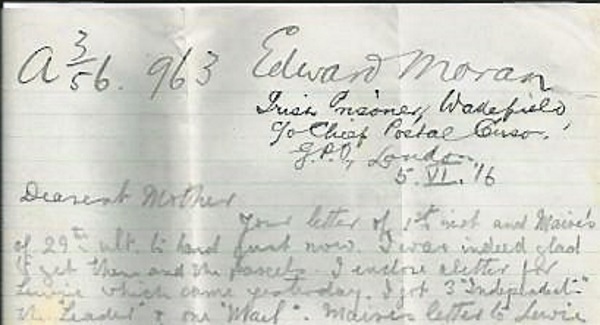 A 3/56. 963 Edward Moran
Irish Prisoner, Wakefield,
c/o Chief Postal Censor,
G.P.O., London.
5. VI. '16
Dearest Mother
Your letter of 1st inst and Maire's
of 29th ult. to hand just now. I was indeed glad
to get them and the parcels. I enclose a letter for
which came yesterday. I got 3 "Independents"
the "Leader" & one "Mail". Maire's letter to